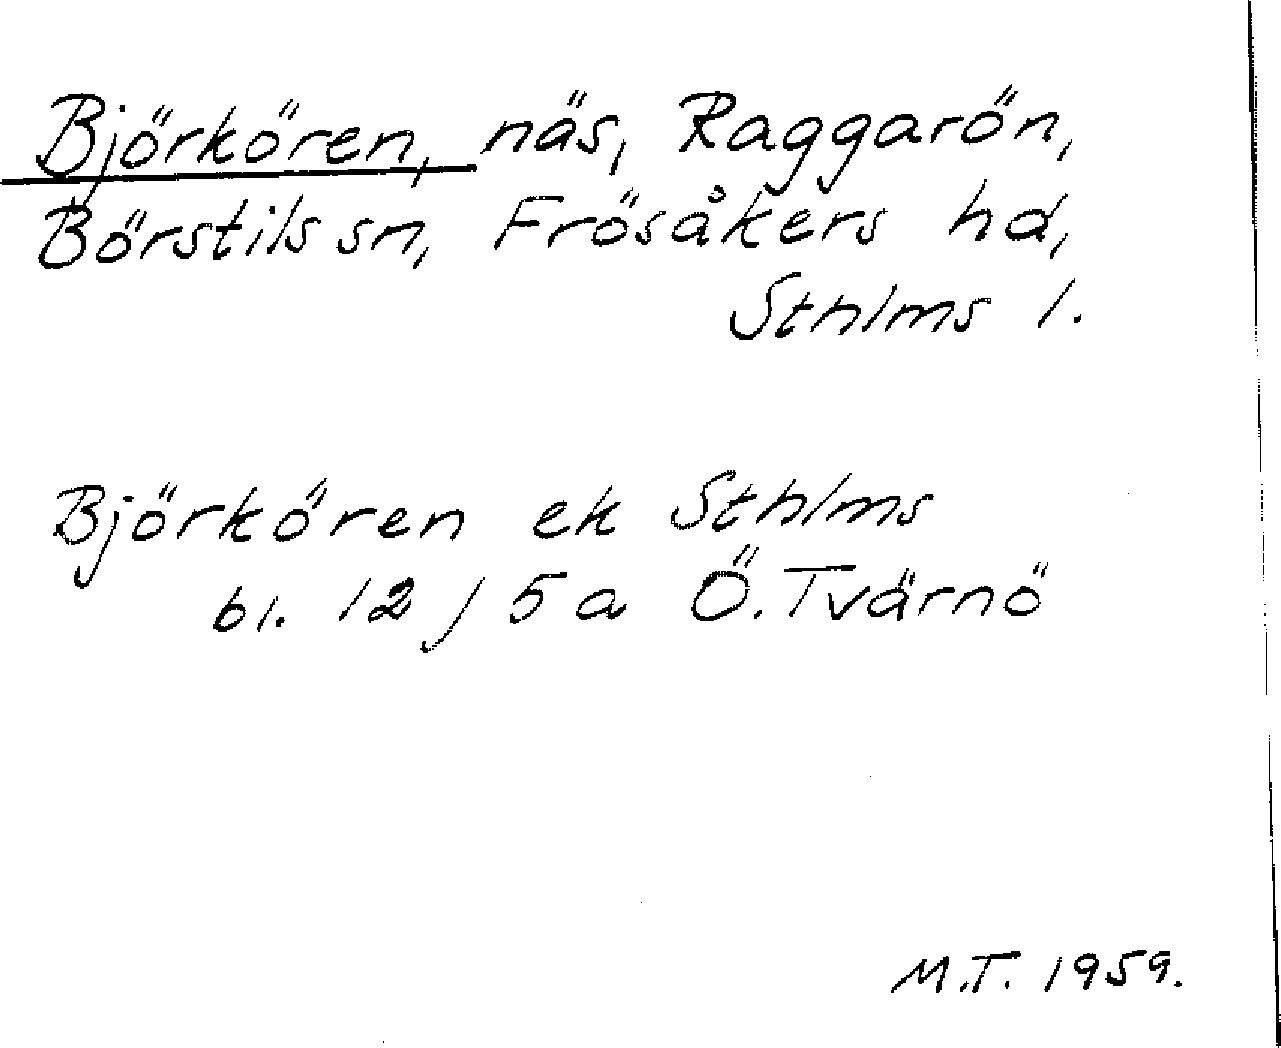 Björkören, näs, Raggarön,
Börstils sn, Frösåkers hd,
Sthlms l.
Björkören ek Sthlms
bl. 12 / 5 a Ö. Tvärnö
M.T. 1959.